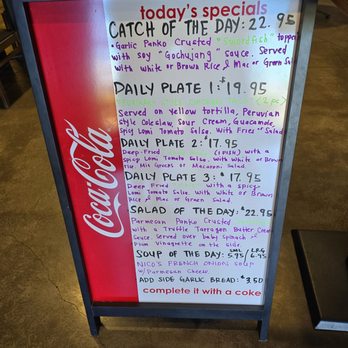 today's specials
CATCH OF THE DAY: 22.95
Garlic Panko Crusted "Swordfish" topped
with soy "Gochujang" sauce. Served
with white or Brown Rice & Mac or Green Salad
DAILY PLATE 1: $19.95
(2 pc)
Served on yellow tortilla, Peruvian
style Coleslaw, Sour Cream, Guacamole,
Spicy Lomi Tomato Salsa. with Fries or Salad
DAILY PLATE 2: $17.95
Deep Fried with a
Spicy Lomi Tomato Salsa. With White or Brown
Rice Mix Greens or Macaroni Salad
DAILY PLATE 3: $17.95
Deep Fried with a spicy
Lomi Tomato Salsa. With white or Brown
Rice & Mac or Green Salad.
SALAD OF THE DAY: $22.95
Parmesan Panko Crusted
with a Truffle Tarragon Butter Cream
Sauce served over baby Spinach
Vinaigrette on the side.
SOUP OF THE DAY: SML 5.95 / LRG 6.95
NICO'S FRENCH ONION SOUP
w/Parmesan Cheese
ADD SIDE GARLIC BREAD: $3.50
complete it with a coke
Coca-Cola